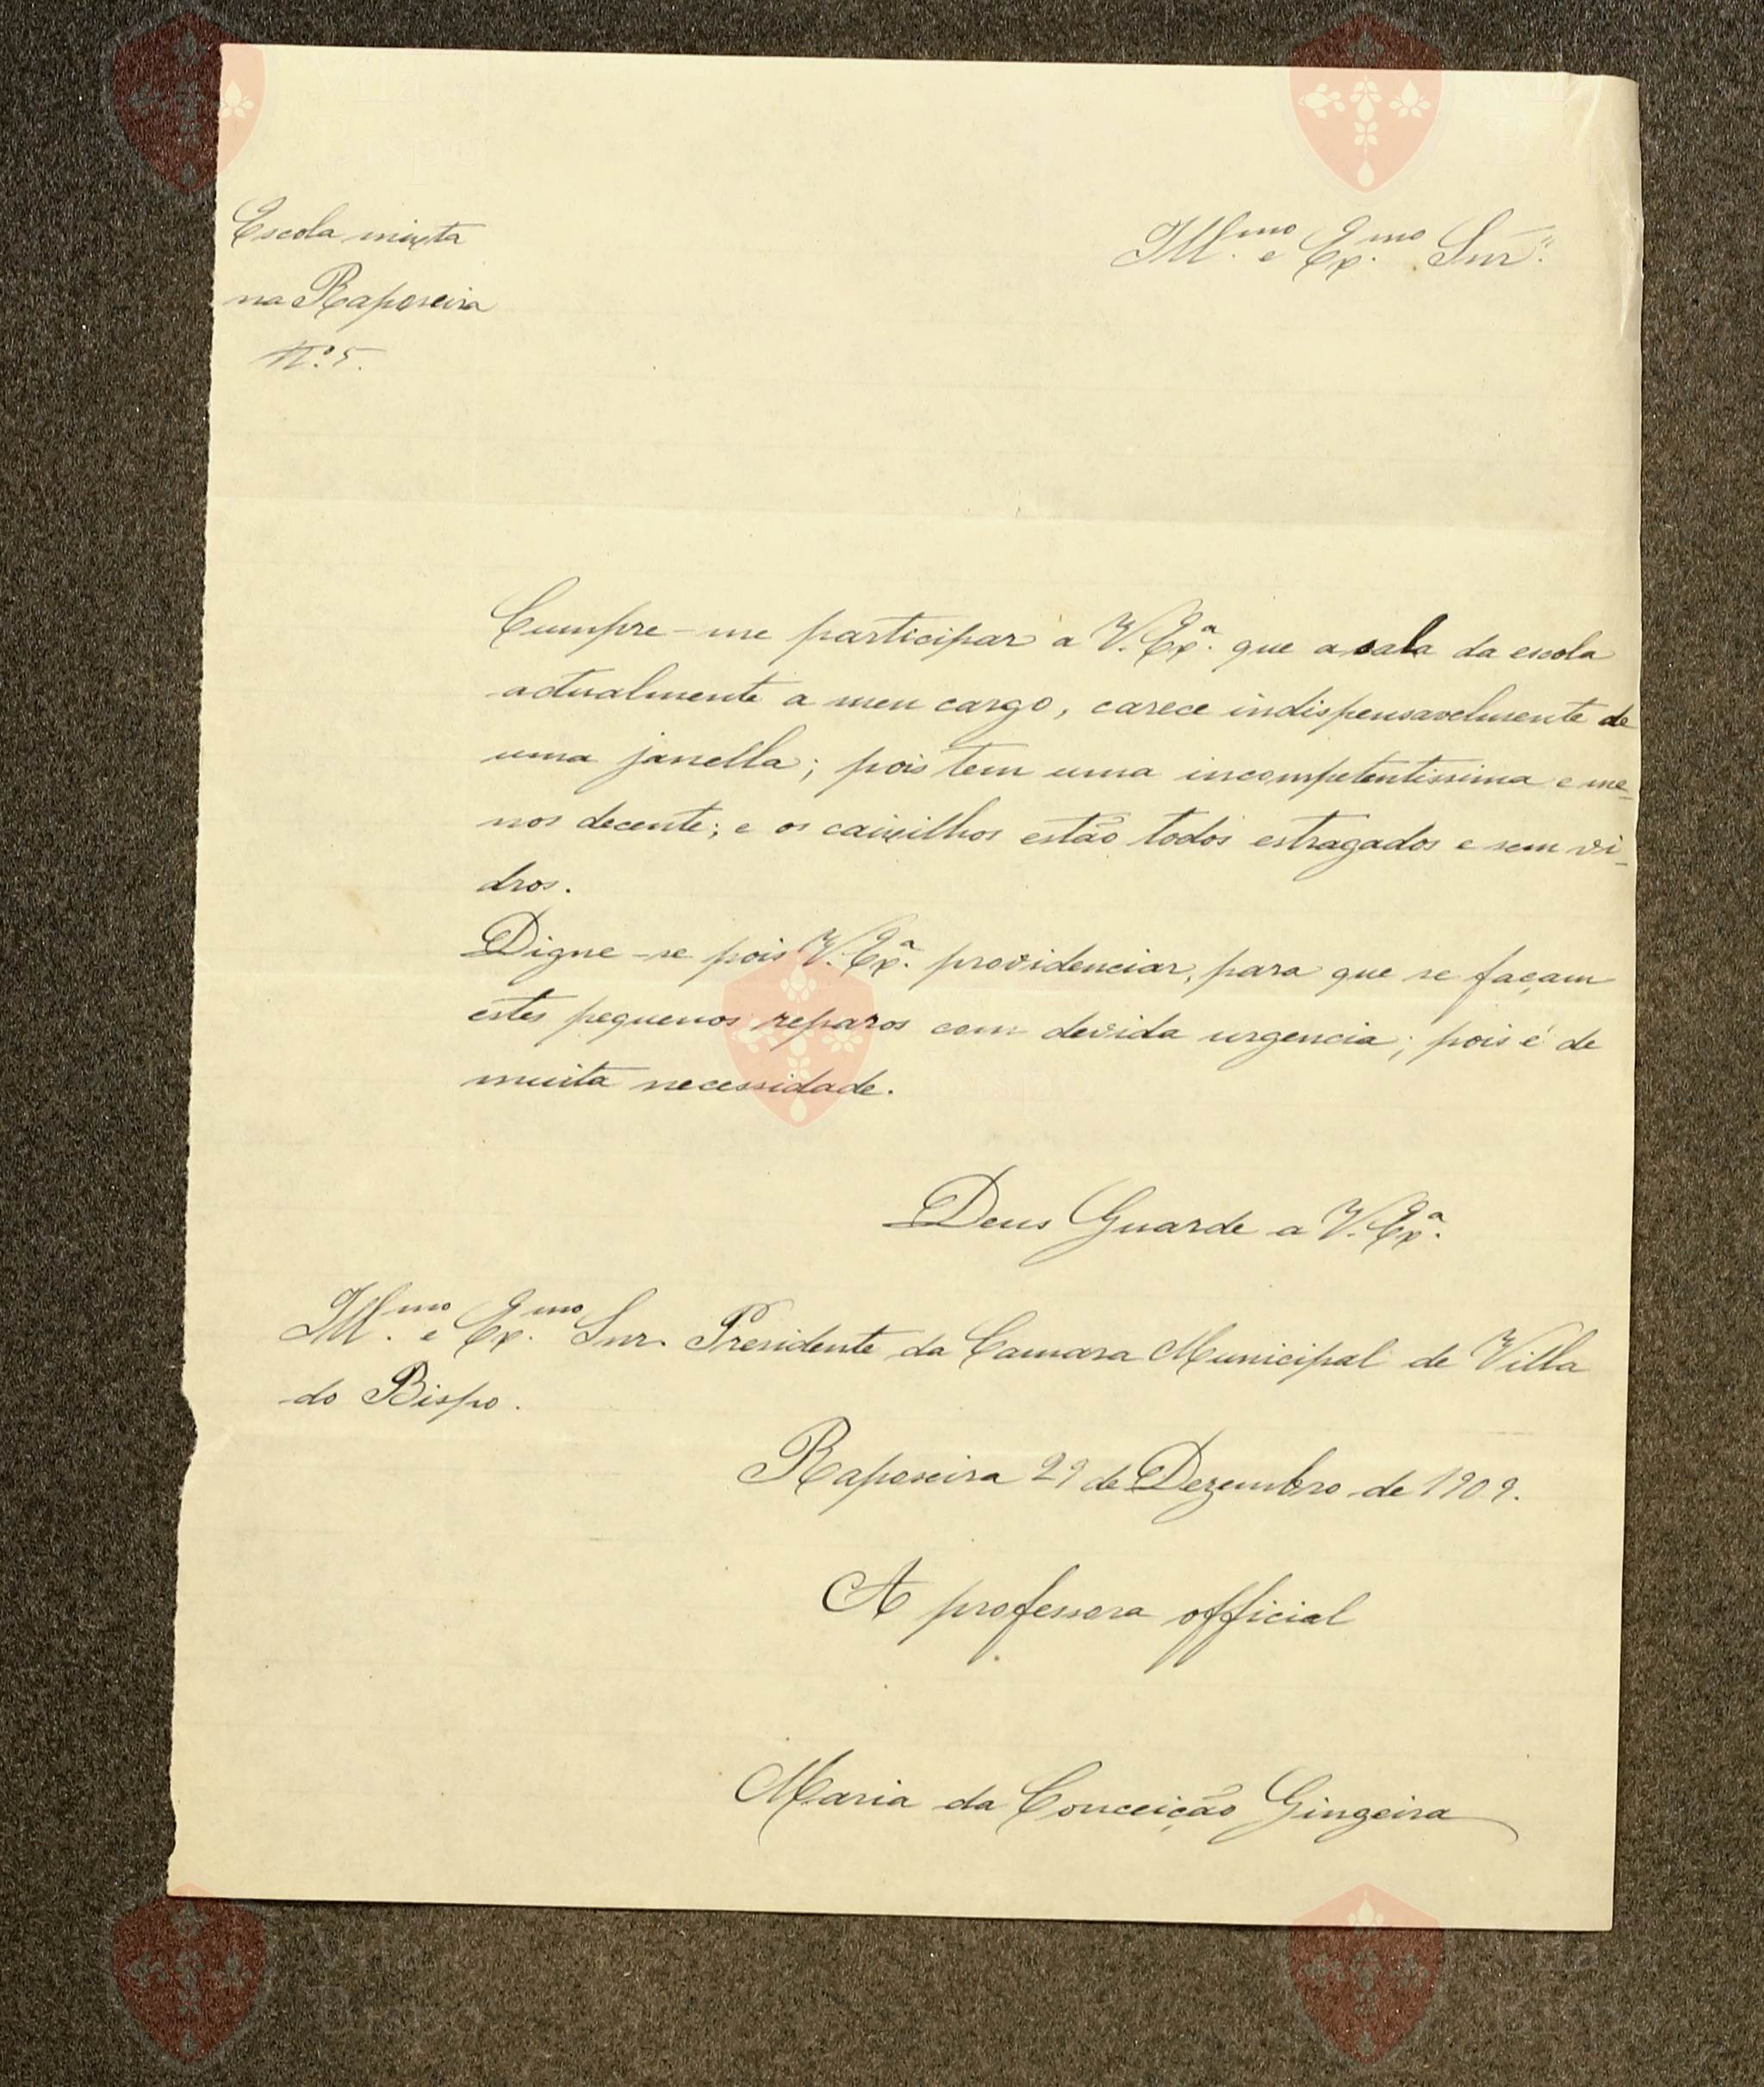 Escola mixta
na Raposeira
N.º 5.
Ill.mo e Ex.mo Snr.
Cumpre-me participar a V. Ex.ª que a sala da escola
actualmente a meu cargo, carece indispensavelmente de
uma janella; pois tem uma incompetentissima e me-
nos decente; e os caixilhos estão todos estragados e sem vi-
dros.
Digne-se pois V. Ex.ª providenciar, para que se façam
estes pequenos reparos com devida urgencia; pois é de
muita necessidade.
Deus Guarde a V. Ex.ª
Ill.mo e Ex.mo Snr. Presidente da Camara Municipal de Villa
do Bispo.
Raposeira 29 de Dezembro de 1909.
A professora official
Maria da Conceição Gingeira